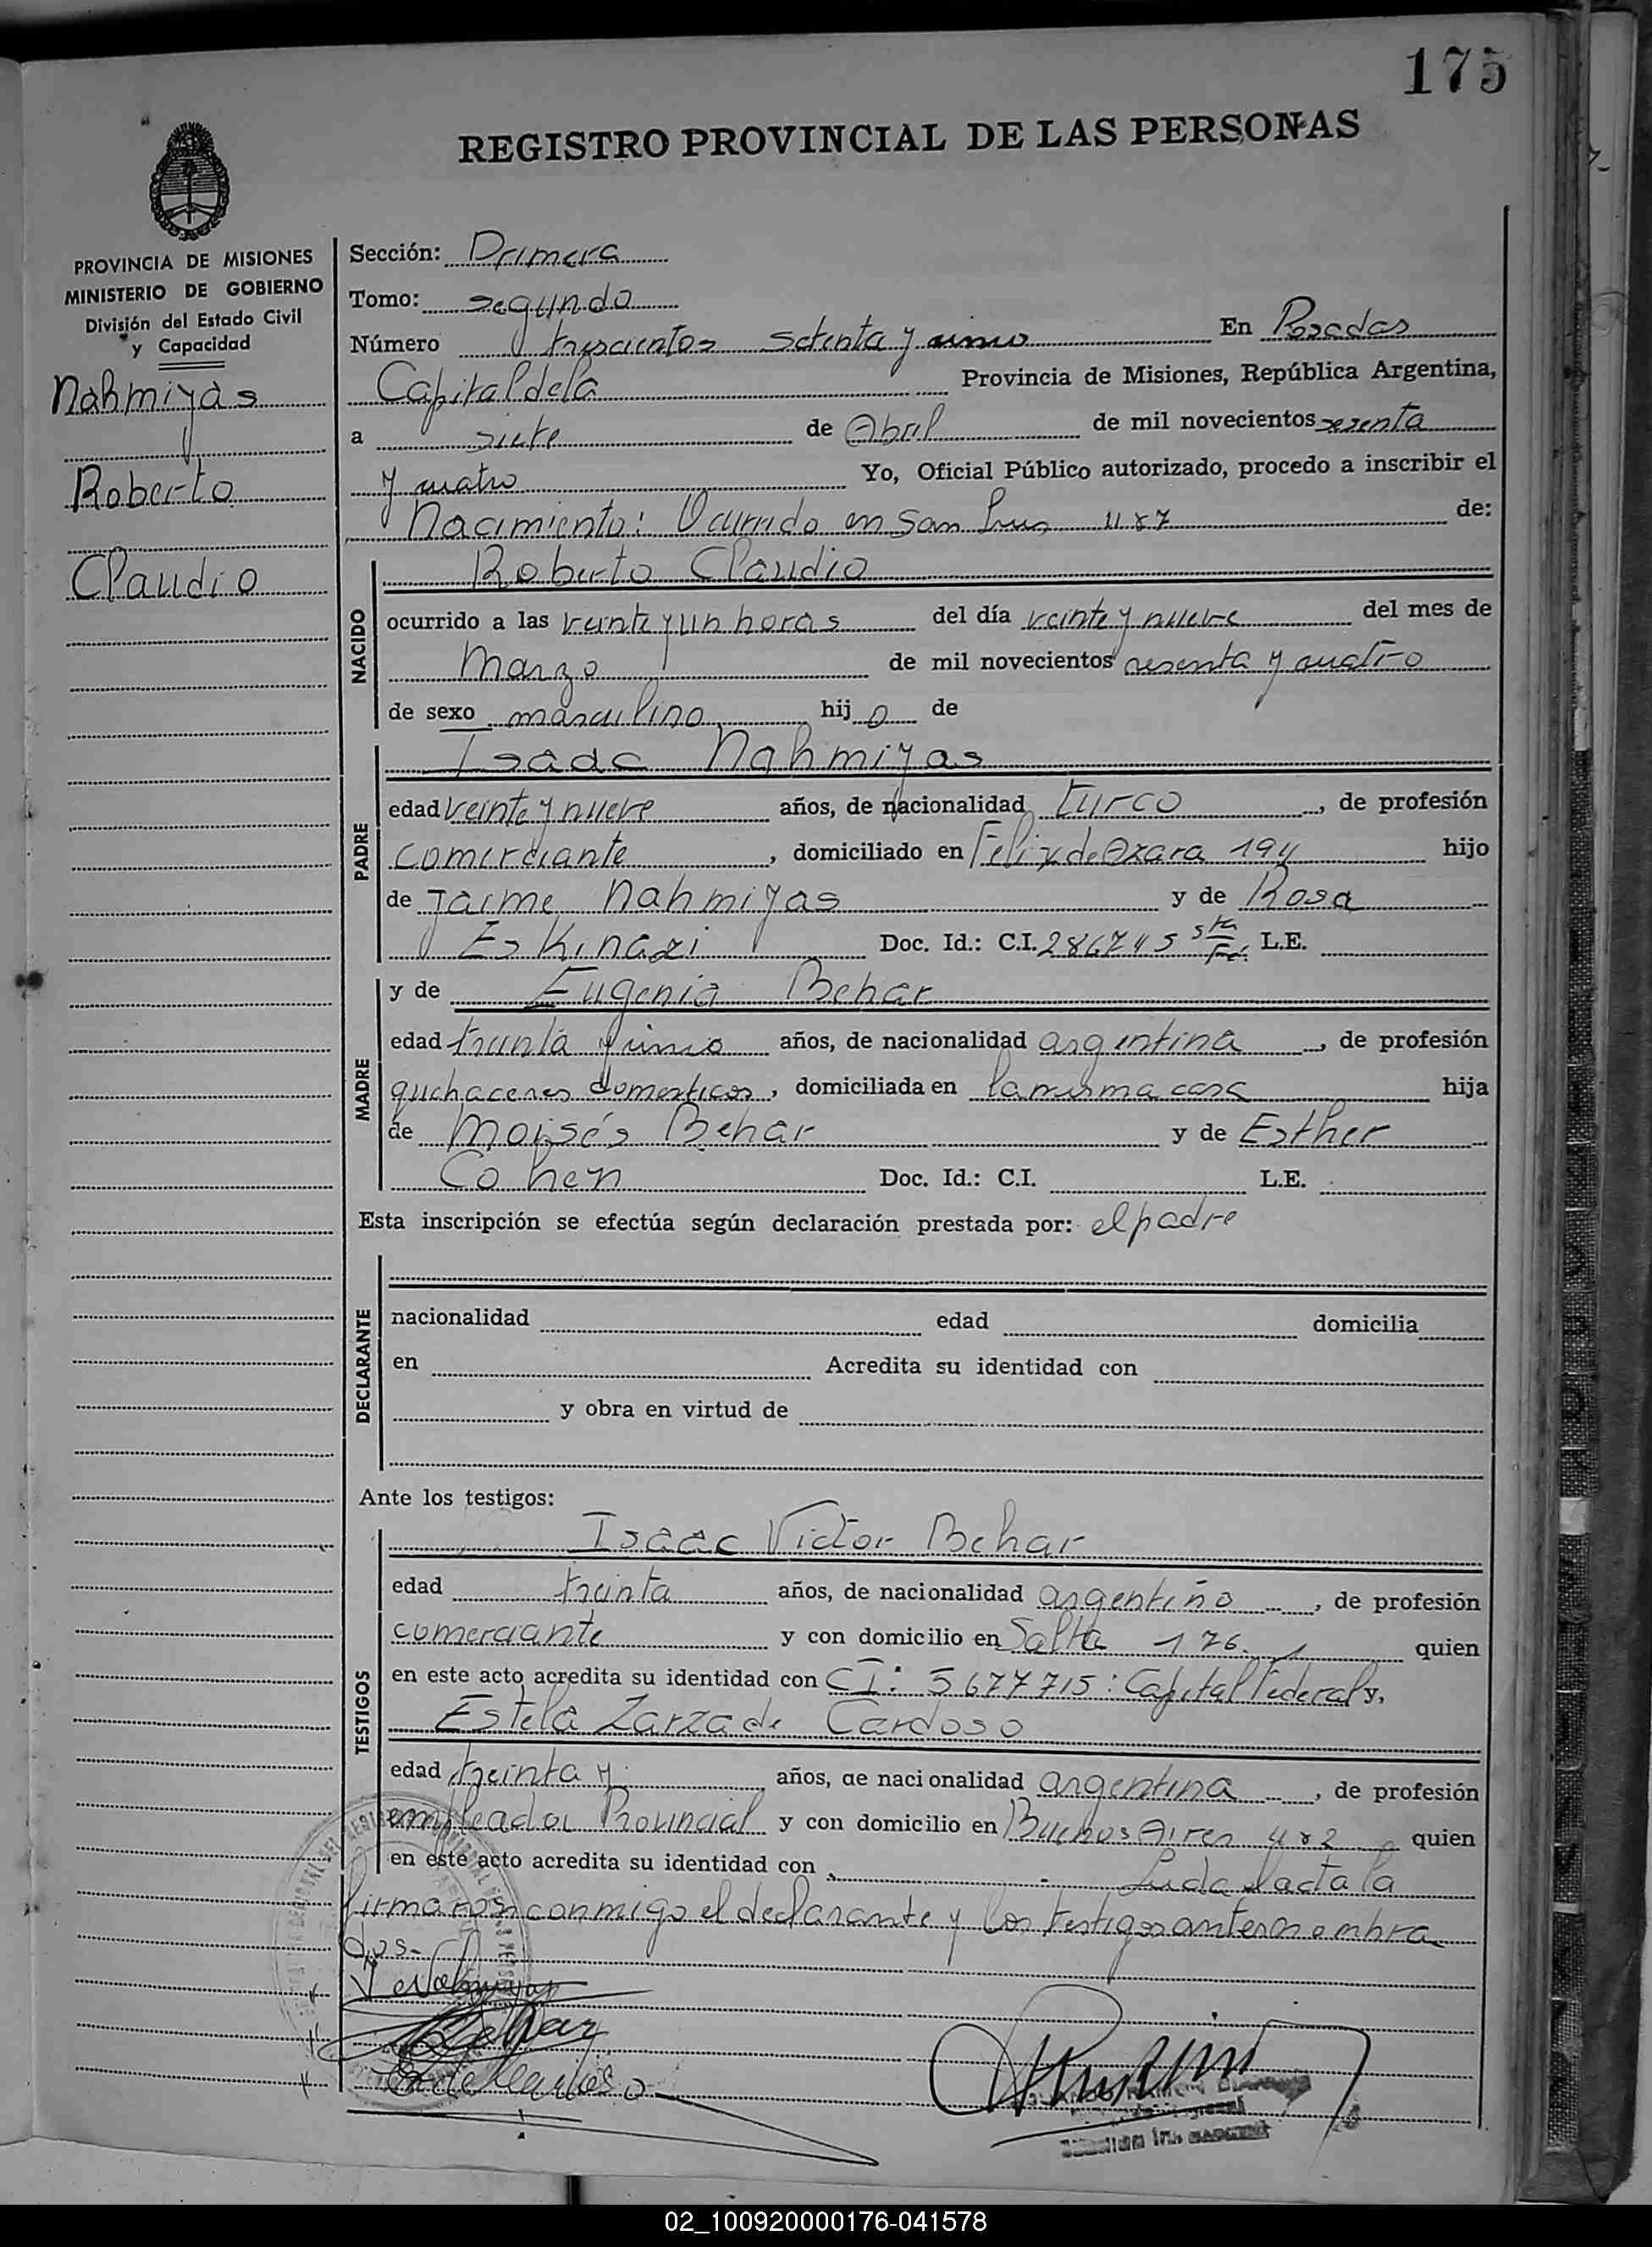 175
REGISTRO PROVINCIAL DE LAS PERSONAS
PROVINCIA DE MISIONES
MINISTERIO DE GOBIERNO
División del Estado Civil
y Capacidad
Nahmiyas
Roberto
Claudio
Sección: Primera
Tomo: segundo
Número trescientos setenta y cinco En Posadas
Capital de la Provincia de Misiones, República Argentina,
a siete de Abril de mil novecientos sesenta
y cuatro Yo, Oficial Público autorizado, procedo a inscribir el
Nacimiento: Ocurrido en San Luis de:
NACIDO
Roberto Claudio
ocurrido a las veinte y un horas del día veinte y nueve del mes de
Marzo de mil novecientos sesenta y cuatro
de sexo masculino hijo de
PADRE
Isaac Nahmiyas
edad veinte y nueve años, de nacionalidad turco, de profesión
comerciante, domiciliado en Felix de Azara 194 hijo
de Jaime Nahmiyas y de Rosa
Eskinazi Doc. Id.: C.I. 286745 Sta Fe. L.E.
MADRE
y de Eugenia Behar
edad treinta y cinco años, de nacionalidad argentina, de profesión
quehaceres domesticos, domiciliada en la misma casa hija
de Moisés Behar y de Esther
Cohen Doc. Id.: C.I. L.E.
Esta inscripción se efectúa según declaración prestada por: el padre
DECLARANTE
nacionalidad edad domicilia
en Acredita su identidad con
y obra en virtud de
Ante los testigos:
TESTIGOS
Isaac Victor Behar
edad treinta años, de nacionalidad argentino, de profesión
comerciante y con domicilio en Salta 176. quien
en este acto acredita su identidad con CI: 5677715: Capital Federal y,
Estela Zarza de Cardoso
edad treinta y años, de nacionalidad argentina, de profesión
empleada Provincial y con domicilio en Buenos Aires 482 quien
en este acto acredita su identidad con Leida el acta la
firmaron conmigo el declarante y los testigos antes nombra
dos.-
02_100920000176-041578